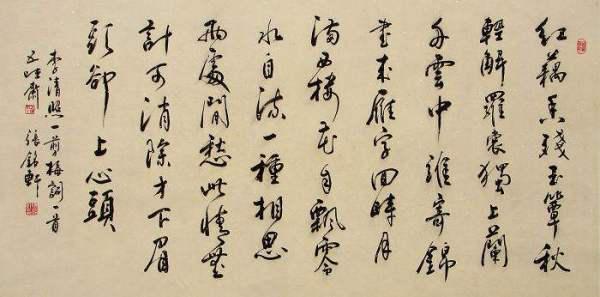 紅藕香殘玉簟秋
輕解羅裳獨上蘭
舟雲中誰寄錦
書來雁字回時月
滿西樓花自飄零
水自流一種相思
兩處閒愁此情無
計可消除才下眉
頭卻上心頭
李清照一剪梅詞一首
張 軒